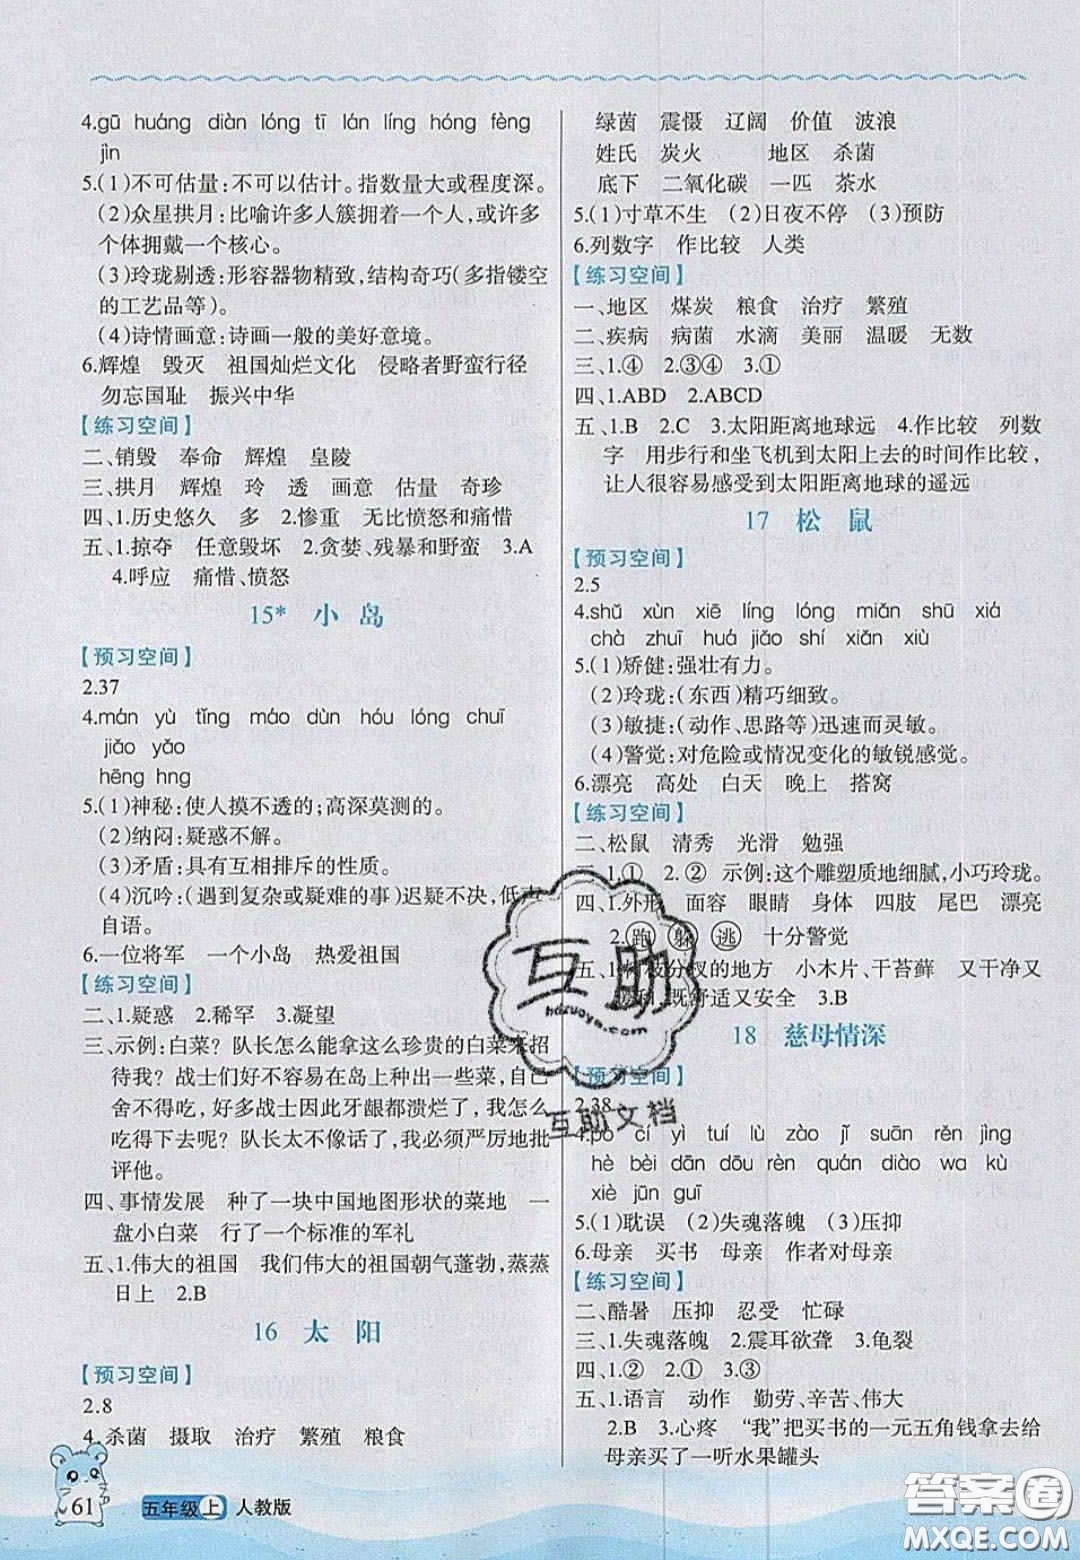 4.gū huáng diàn lóng tī lán líng hóng fèng
jìn
5.(1)不可估量:不可以估计。指数量大或程度深。
(2)众星拱月:比喻许多人簇拥着一个人,或许多
个体拥戴一个核心。
(3)玲珑剔透:形容器物精致,结构奇巧(多指镂空
的工艺品等)。
(4)诗情画意:诗画一般的美好意境。
6.辉煌 毁灭 祖国灿烂文化 侵略者野蛮行径
勿忘国耻 振兴中华
【练习空间】
二、销毁 奉命 辉煌 皇陵
三、拱月 辉煌 玲 透 画意 估量 奇珍
四、1.历史悠久 多 2.惨重 无比愤怒和痛惜
五、1.掠夺 任意毁坏 2.贪婪、残暴和野蛮 3.A
4.呼应 痛惜、愤怒
15* 小 岛
【预习空间】
2.37
4.mán yù tǐng máo dùn hóu lóng chuī
jiǎo yǎo
hēng hng
5.(1)神秘:使人摸不透的;高深莫测的。
(2)纳闷:疑惑不解。
(3)矛盾:具有互相排斥的性质。
(4)沉吟:(遇到复杂或疑难的事)迟疑不决,低声
自语。
6.一位将军 一个小岛 热爱祖国
【练习空间】
二、1.疑惑 2.稀罕 3.凝望
三、示例:白菜?队长怎么能拿这么珍贵的白菜来招
待我?战士们好不容易在岛上种出一些菜,自己
舍不得吃,好多战士因此牙龈都溃烂了,我怎么
吃得下去呢?队长太不像话了,我必须严厉地批
评他。
四、事情发展 种了一块中国地图形状的菜地 一
盘小白菜 行了一个标准的军礼
五、1.伟大的祖国 我们伟大的祖国朝气蓬勃,蒸蒸
日上 2.B
16 太 阳
【预习空间】
2.8
4.杀菌 摄取 治疗 繁殖 粮食
绿茵 震慑 辽阔 价值 波浪
姓氏 炭火 地区 杀菌
底下 二氧化碳 一匹 茶水
5.(1)寸草不生 (2)日夜不停 (3)预防
6.列数字 作比较 人类
【练习空间】
一、地区 煤炭 粮食 治疗 繁殖
二、疾病 病菌 水滴 美丽 温暖 无数
三、1.④ 2.③④ 3.①
四、1.ABD 2.ABCD
五、1.B 2.C 3.太阳距离地球远 4.作比较 列数
字 用步行和坐飞机到太阳上去的时间作比较,
让人很容易感受到太阳距离地球的遥远
17 松 鼠
【预习空间】
2.5
4.shǔ xùn xiē líng lóng miǎn shū xiá
chà zhuī huá jiǎo shí xiǎn xiù
5.(1)矫健:强壮有力。
(2)玲珑:(东西)精巧细致。
(3)敏捷:(动作、思路等)迅速而灵敏。
(4)警觉:对危险或情况变化的敏锐感觉。
6.漂亮 高处 白天 晚上 搭窝
【练习空间】
二、松鼠 清秀 光滑 勉强
三、1.① 2.② 示例:这个雕塑质地细腻,小巧玲珑。
四、1.外形 面容 眼睛 身体 四肢 尾巴 漂亮
2.跑 躲 逃 十分警觉
五、1.树枝分杈的地方 小木片、干苔藓 又干净又
暖和,既舒适又安全 3.B
18 慈母情深
【预习空间】
2.38
4.pò cí yì tuí lù zào jī suān rěn jìng
hè bèi dān dōu rèn quán diào wa kù
xiè jūn guī
5.(1)耽误 (2)失魂落魄 (3)压抑
6.母亲 买书 母亲 作者对母亲
【练习空间】
二、酷暑 压抑 忍受 忙碌
三、1.失魂落魄 2.震耳欲聋 3.龟裂
四、1.② 2.① 3.③
五、1.语言 动作 勤劳、辛苦、伟大
2.B 3.心疼 “我”把买书的一元五角钱拿去给
母亲买了一听水果罐头
61 五年级上 人教版
互助
hdzuoye.com
互助文档
答案圈
MXQE.COM